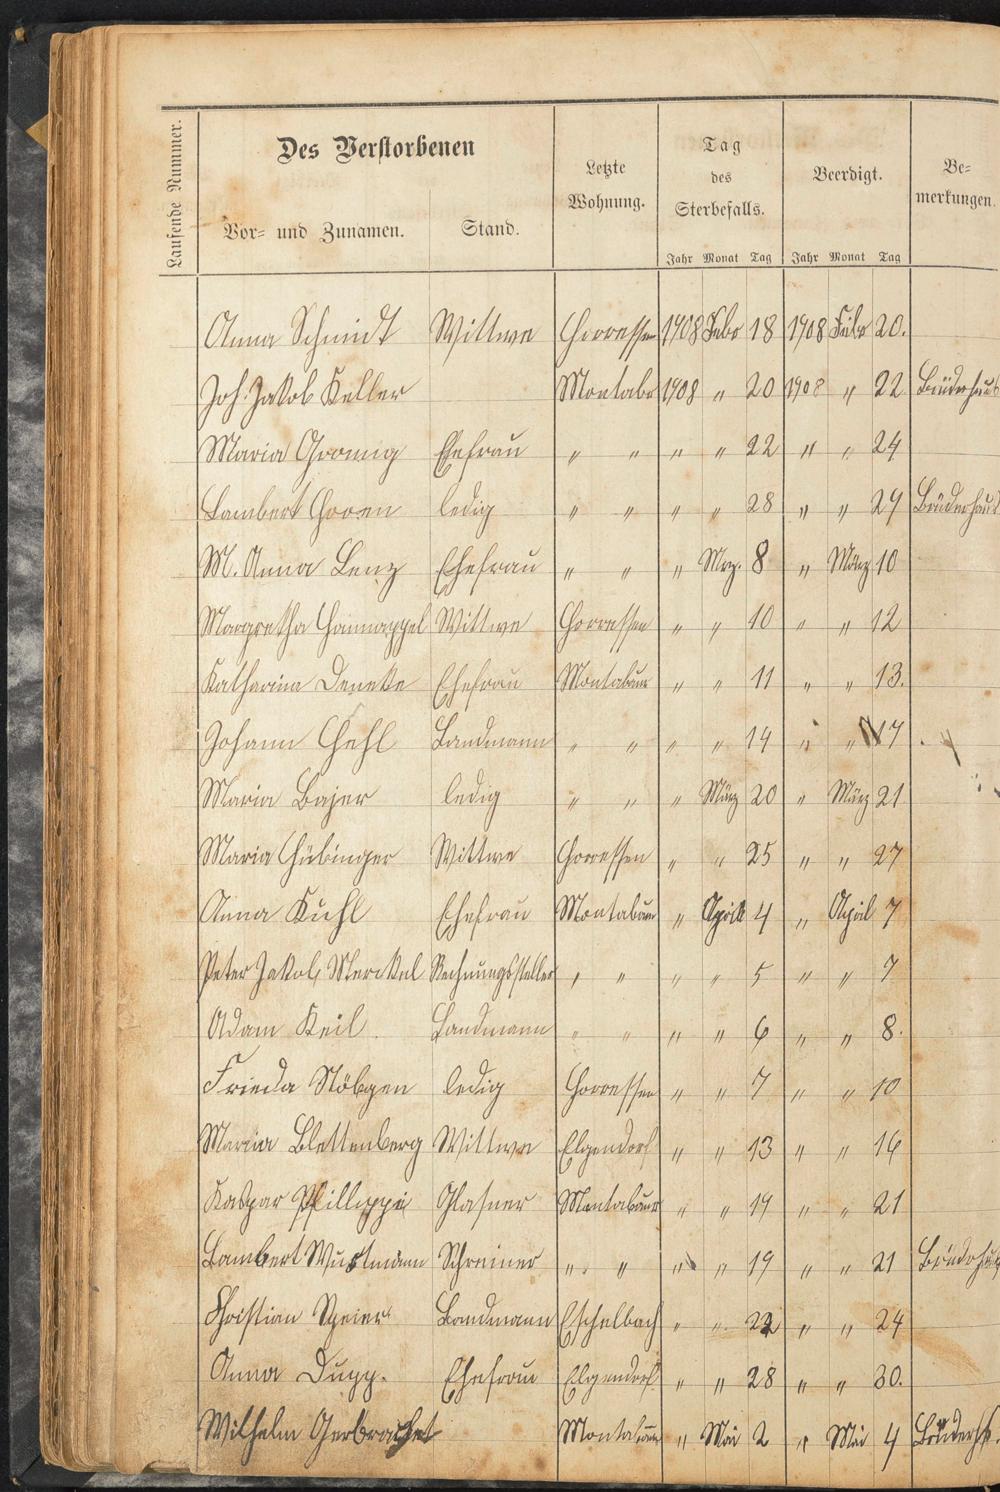 Laufende Nummer.
Des Verstorbenen
Vor- und Zunamen.
Stand.
Letzte
Wohnung.
Tag
des
Sterbefalls.
Jahr Monat Tag
Beerdigt.
Jahr Monat Tag
Be-
merkungen.
Anna Schmidt Wittwe Horressen 1908 Febr 18 1908 Febr 20.
Joh. Jakob Keller Montabr 1908 " 20 1908 " 22 Brüderhaus
Maria Gromig Ehefrau " " " " 22 " " 24
Lambert ledig " " " " 28 " " 29 Brüderhaus
M. Anna Lenz Ehefrau " " " Mrz. 8 " März 10
Margretha Hannappel Wittwe Horressen " " 10 " " 12
Katharina Deneke Ehefrau Montabaur " " 11 " " 13.
Johann Gehl Landmann " " " " 14 " " 17
Maria Bajer ledig " " " März 20 " März 21
Maria Hübinger Wittwe Horressen " " 25 " " 27
Anna Kuhl Ehefrau Montabaur " April 4 " April 7
Peter Jakob Merckel Rechnungssteller " " " " 5 " " 7
Adam Keil Landmann " " " " 6 " " 8.
Frieda Nöbgen ledig Horressen " " 7 " " 10
Maria Blettenberg Wittwe Elgendorf " " 13 " " 16
Kaspar Phillippi Glasner Montabaur " " 19 " " 21
Lambert Wustmann Schreiner " " " " 19 " " 21 Brüderhaus
Christian Speier Landmann Eschelbach " " 22 " " 24
Anna Dupp. Ehefrau Elgendorf " " 28 " " 30.
Wilhelm Gerbrachet Montabaur " Mai 2 " Mai 4 Brüderhs.